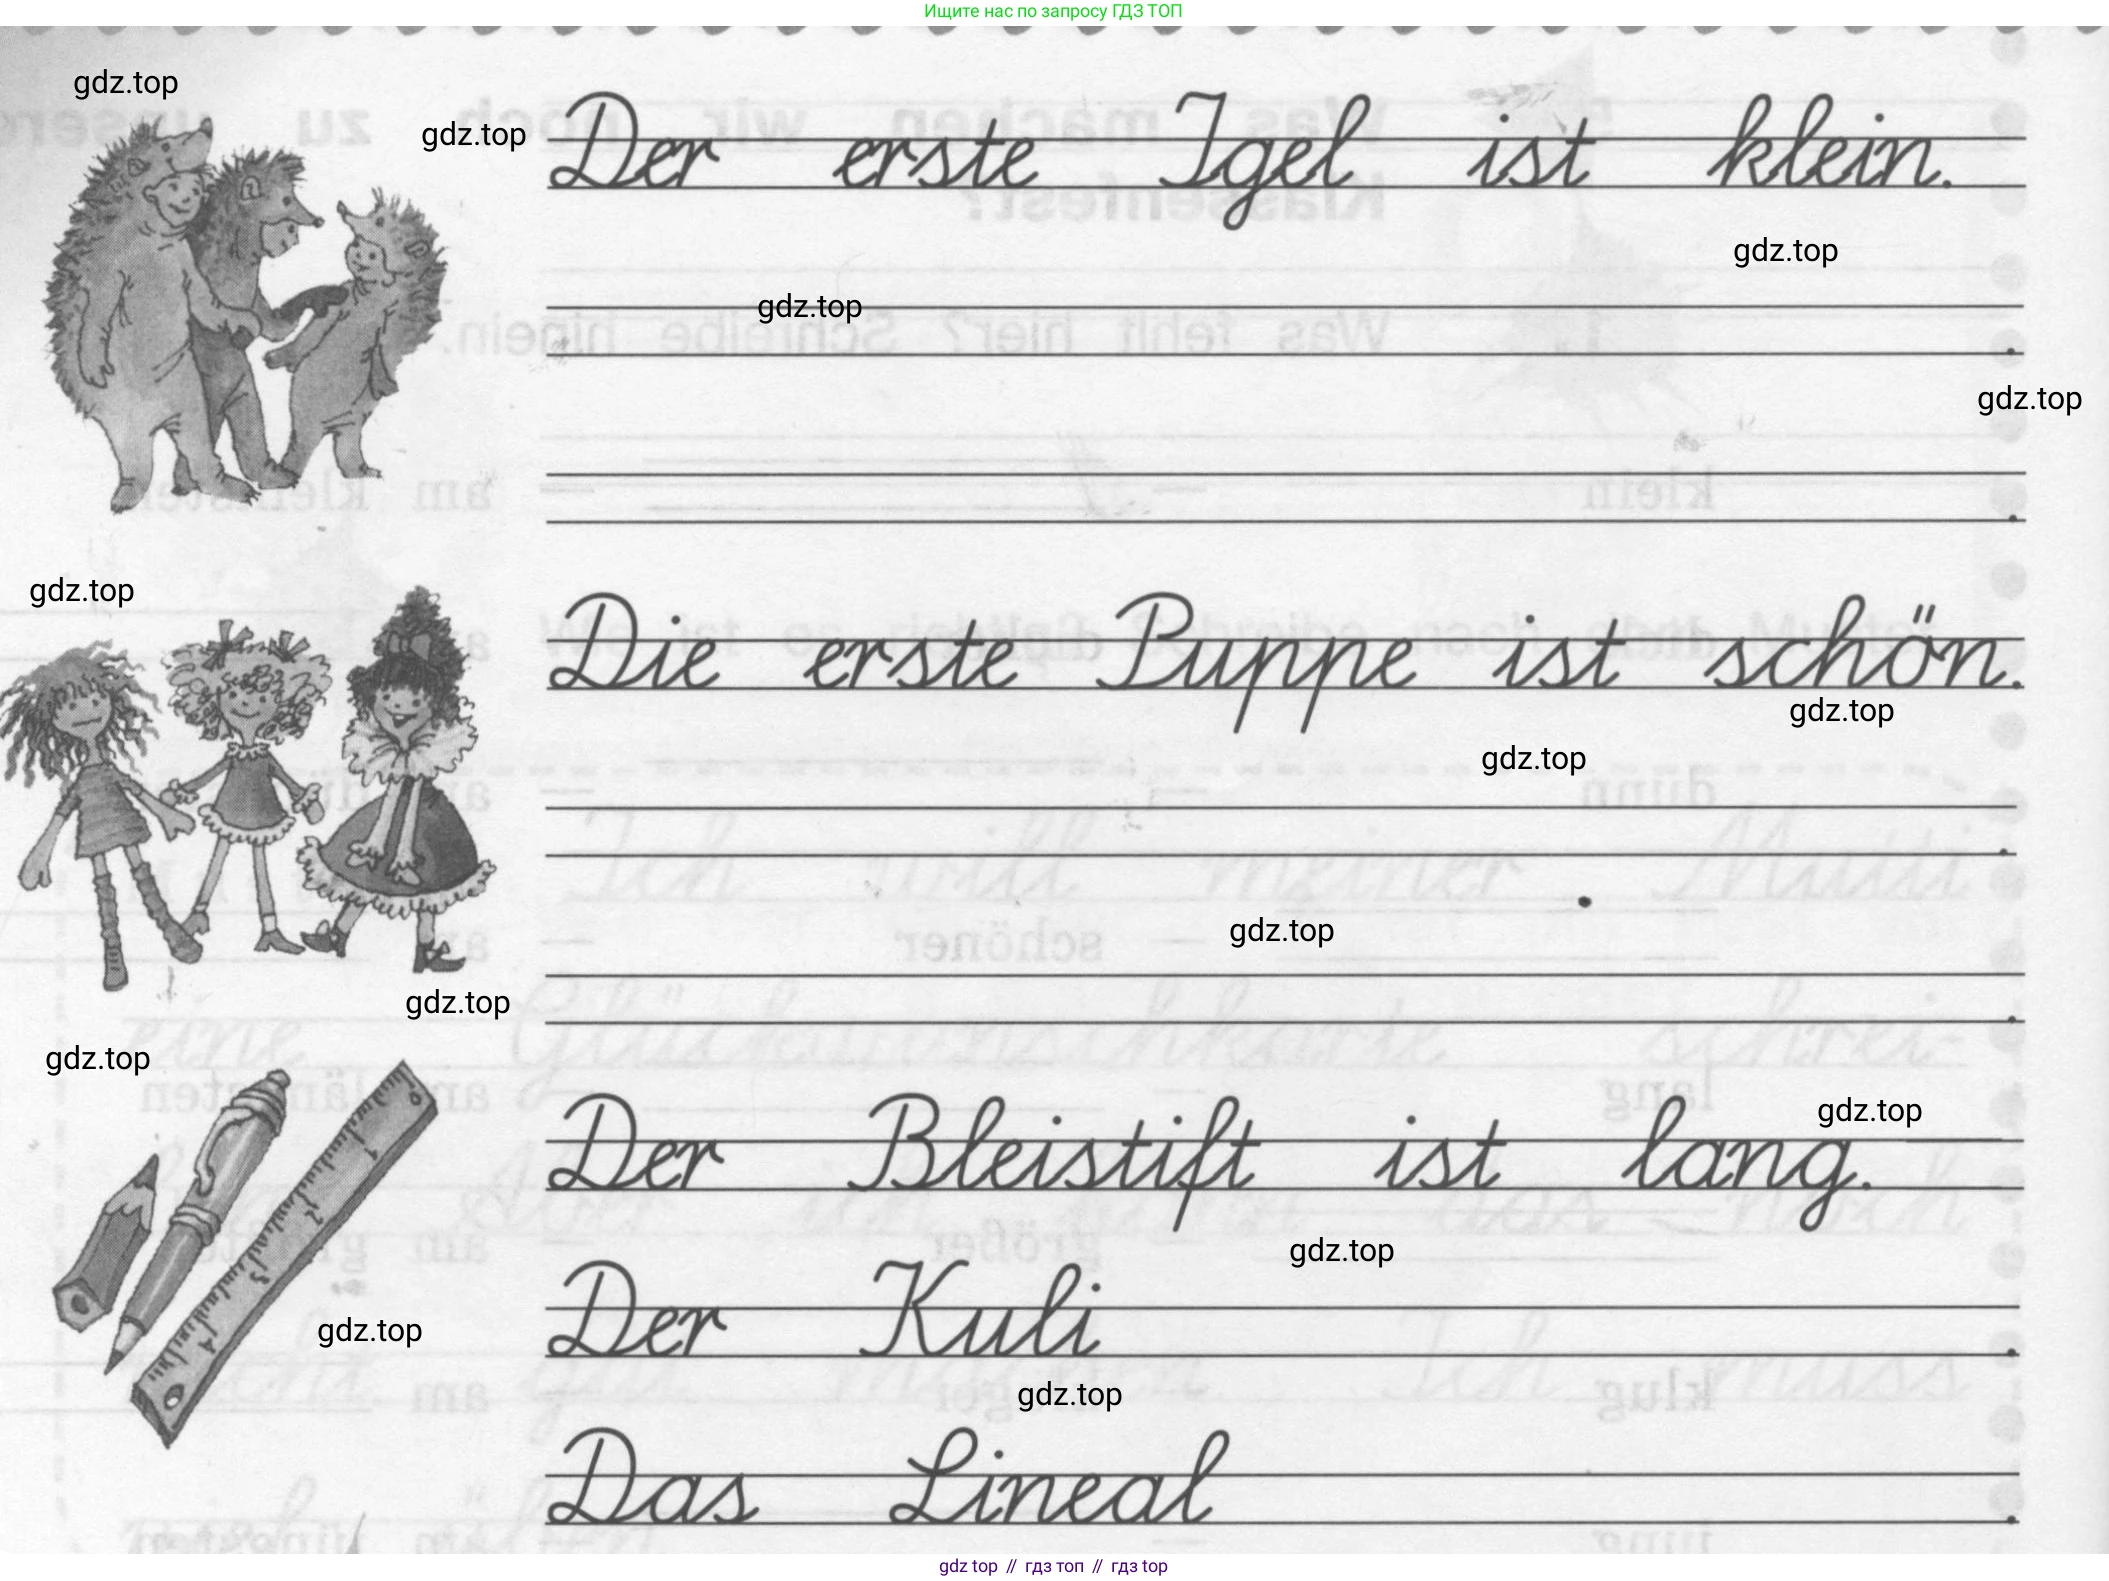 Ищите нас по запросу ГДЗ ТОП
gdz.top
gdz.top
Der erste Igel ist klein.
gdz.top
gdz.top
Was fehlt hier? Schreibe hinein.
gdz.top
klein — — am kleinsten
gdz.top
Die erste Puppe ist schön.
gdz.top
gdz.top
dünn
schöner
gdz.top
gdz.top
gdz.top
lang — — am längsten
gdz.top
Der Bleistift ist lang.
größer
gdz.top
Der Kuli .
gdz.top
klug
gdz.top
Das Lineal .
gdz top // гдз топ // гдз top